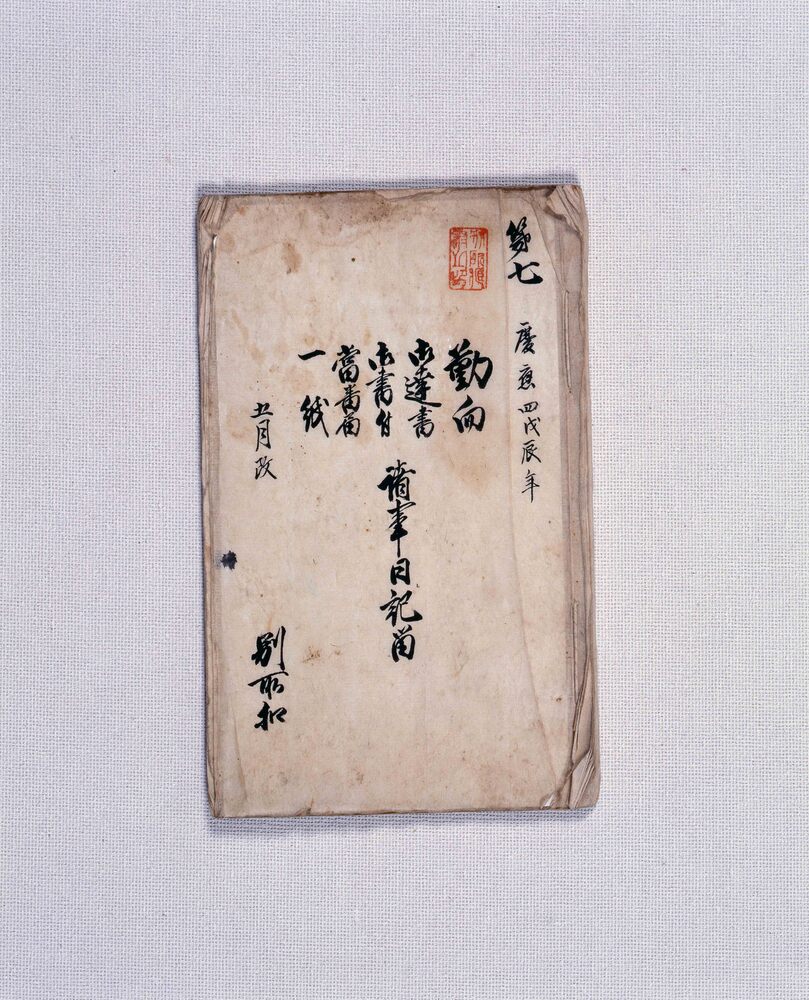 第七
慶應四戊辰年
勤向
御達書
御書付
當番面
一紙
諸事日記留
五月改
別所扣